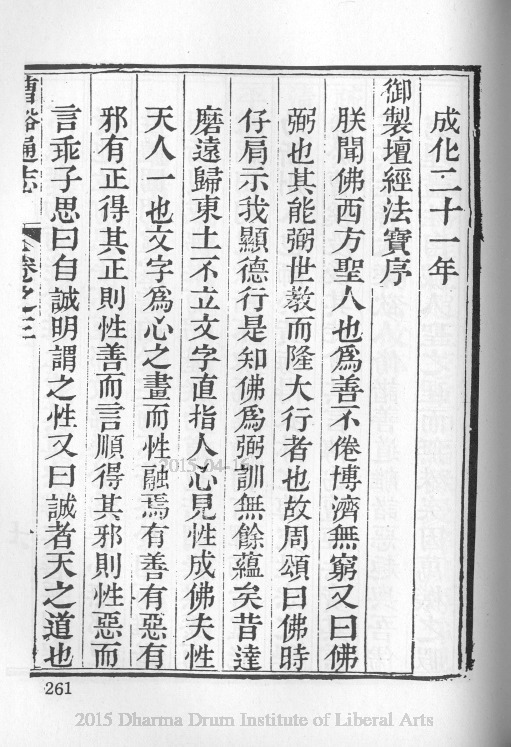 成化二十一年
御製壇經法寶序
朕聞佛西方聖人也爲善不倦博濟無窮又曰佛
弼也其能弼世教而隆大行者也故周頌曰佛時
仔肩示我顯德行是知佛爲弼訓無餘蘊矣昔達
磨遠歸東土不立文字直指人心見性成佛夫性
天人一也文字爲心之畫而性融焉有善有惡有
邪有正得其正則性善而言順得其邪則性惡而
言乖子思曰自誠明謂之性又曰誠者天之道也
曹谿通志 卷之三
261
2015-04-16
2015 Dharma Drum Institute of Liberal Arts